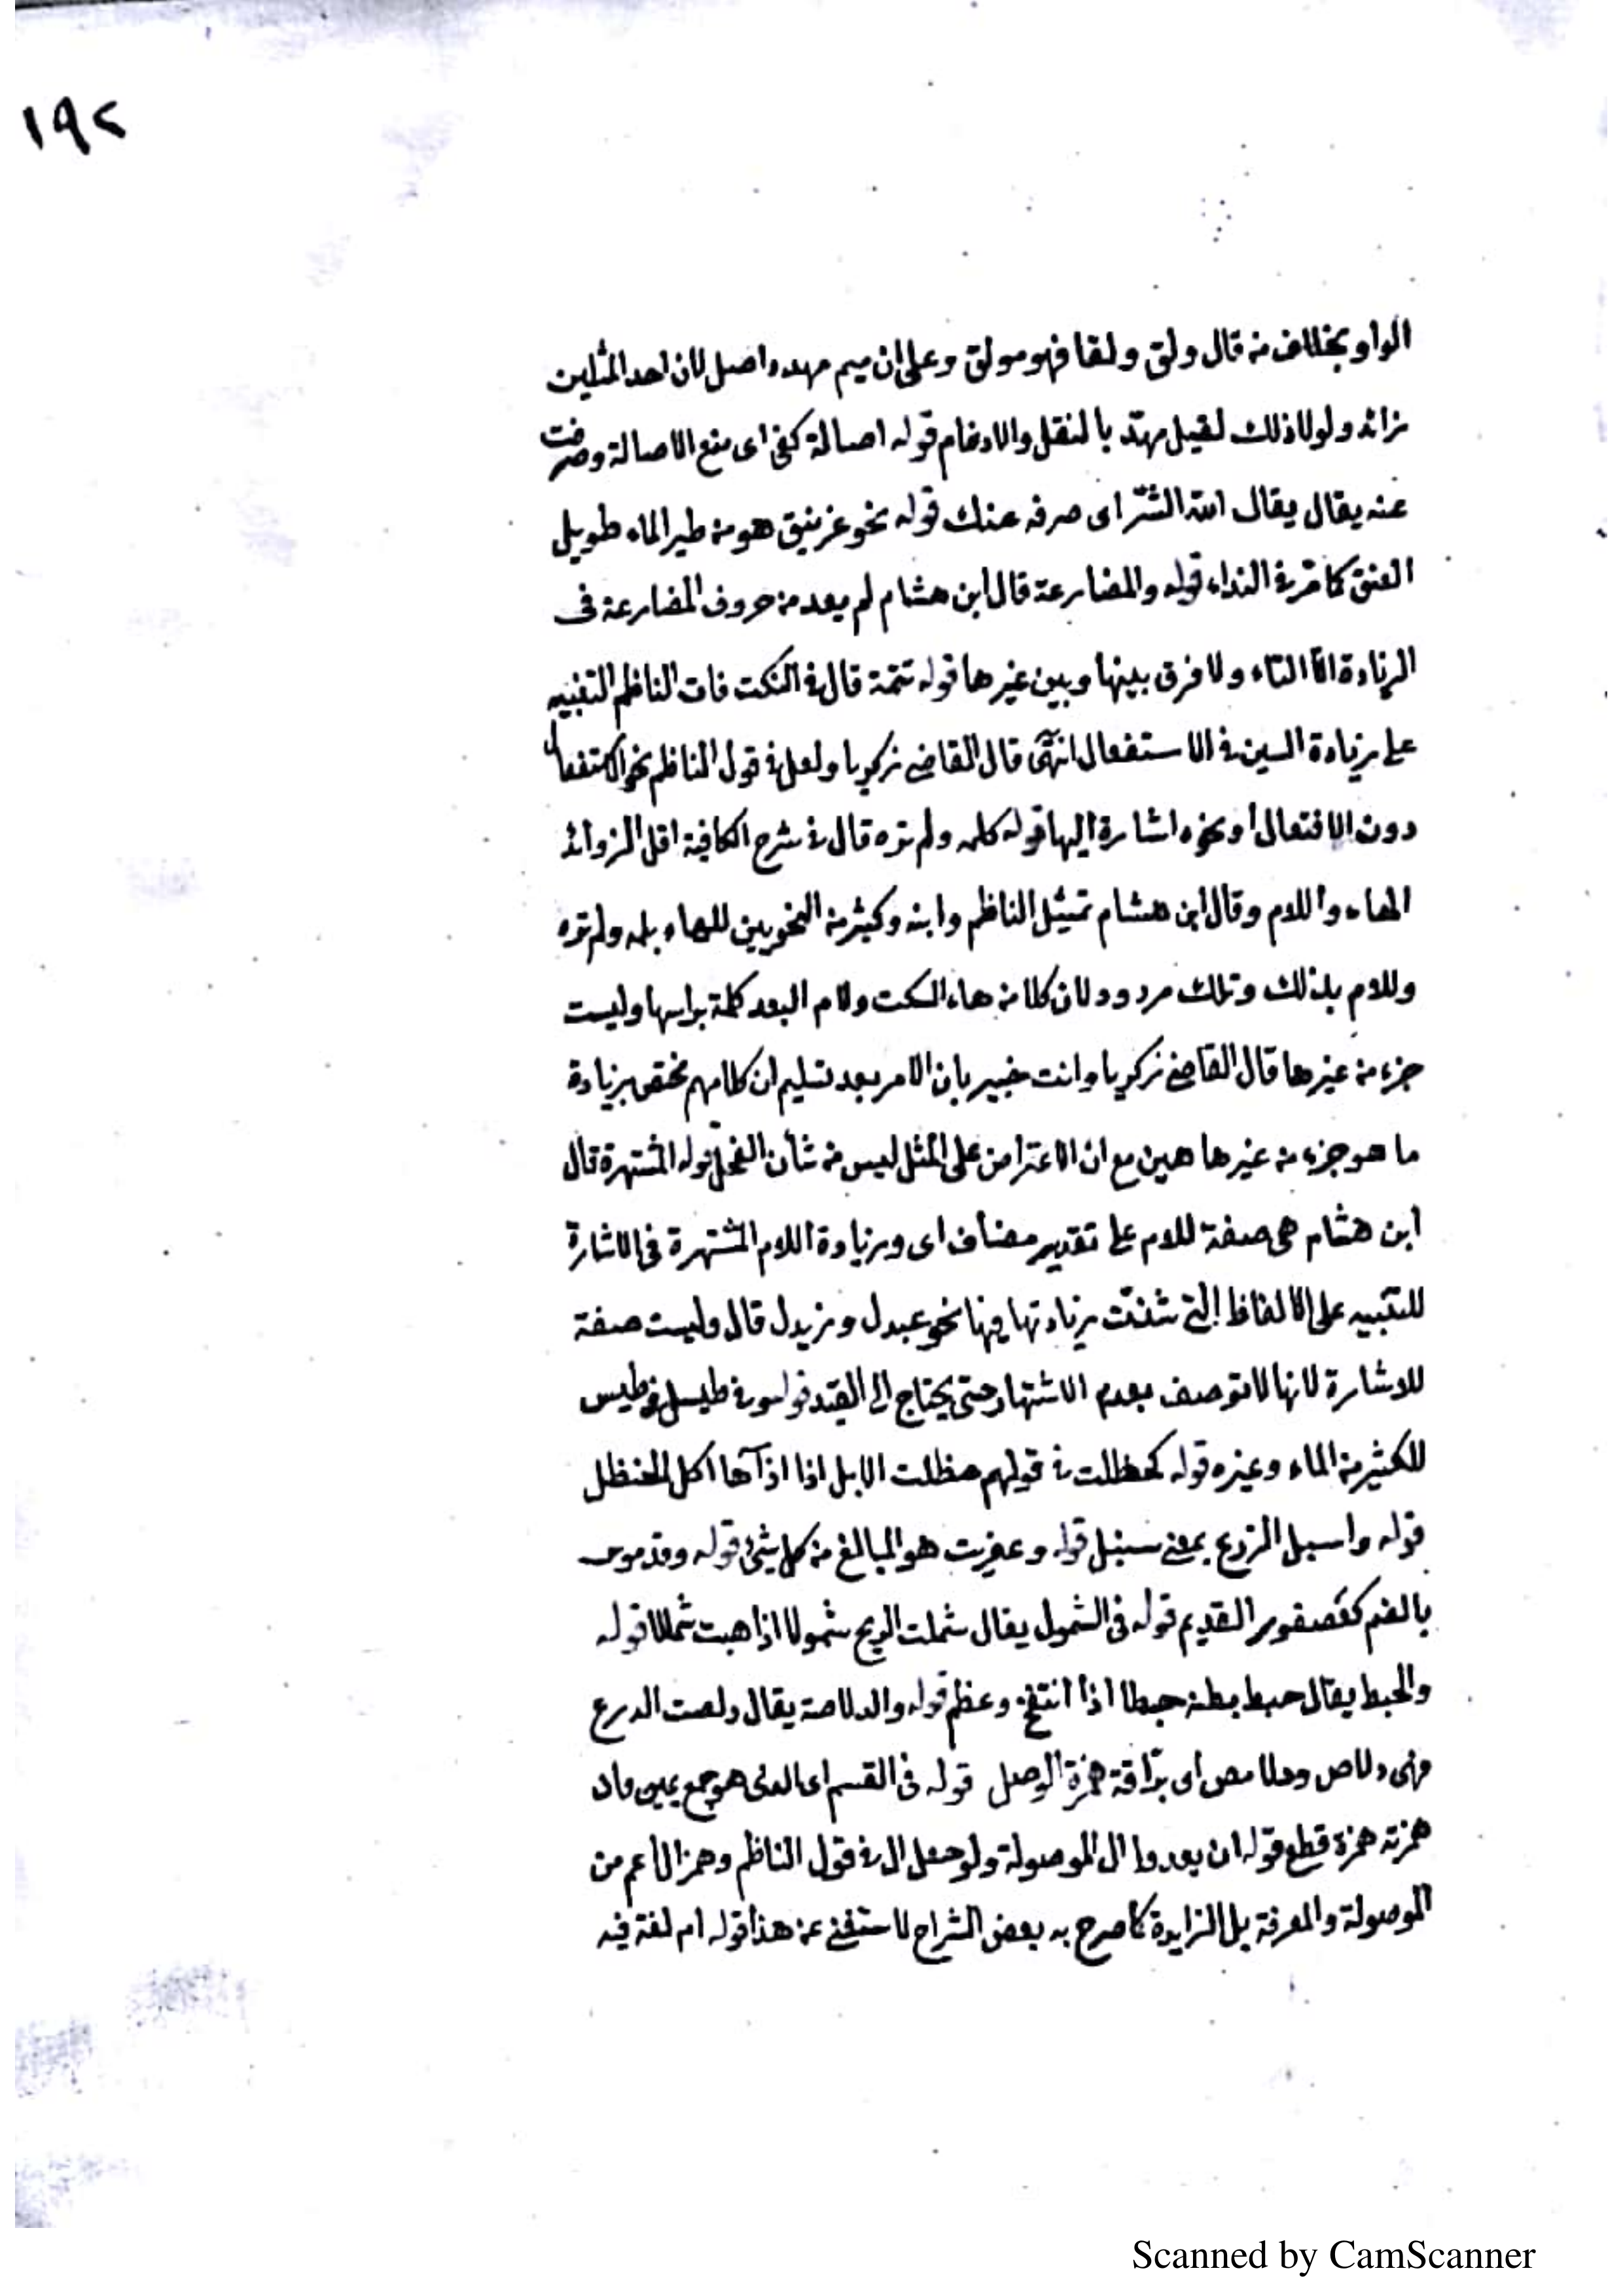 ١٩٢
الواو بخلاف من قال ولق ولقا فهو مولق وعلى ان ميم مهدد اصل لان احد المثلين
زائد ولولا ذلك لقيل مهدّ بالنقل والادغام قوله اصالة كفى اى منع الاصالة وصرفت
عنه يقال يقال الله الشرّ اى صرفه عنك قوله نحو غرنيق هو من طير الماء طويل
العنق كما مرّ فى النداء قوله والمضارعة قال ابن هشام لم يعد من حروف المضارعة فى
الزيادة الا التاء ولا فرق بينها وبين غيرها قوله تتمّة قال فى النكت فات الناظم التنبيه
على زيادة السين فى الاستفعال انتهى قال القاضى زكريا ولعل فى قول الناظم نحو الاستفعال
دون الافتعال او نحوه اشارة اليها قوله كلمه ولم تره قال فى شرح الكافية اقل الزوائد
الهاء واللام وقال ابن هشام تمثيل الناظم وابنه وكثير من النحويين للهاء بلمه ولم تره
وللام بذلك وتلك مردود لان كلا من هاء السكت ولام البعد كلمة براسها وليست
جزء من غيرها قال القاضى زكريا وانت خبير بان الامر بعد تسليم ان كلامهم مختص بزيادة
ما هو جزء من غيرها هين مع ان الاعتراض على المثل ليس من شأن الفحل قوله المشتهرة قال
ابن هشام هى صفة للام على تقدير مضاف اى وزيادة اللام المشتهرة فى الاشارة
للتنبيه على الالفاظ التى شذّت زيادتها فيها نحو عبدل وزيدل قال وليست صفة
للاشارة لانها لا توصف بعدم الاشتهار حتى يحتاج الى القيد قوله وفى طيسل فى طيس
للكثير من الماء وغيره قوله كحظلت فى قولهم حظلت الابل اذا اذآها اكل الحنظل
قوله واسبل الزرع بمعنى سنبل قوله وعفريت هو المبالغ من كل شئ قوله وقدموس
بالضم كعصفور القديم قوله فى الشمول يقال شملت الريح شمولا اذا هبت شملا قوله
والحبط يقال حبط بطنه حبطا اذا انتفخ وعظم قوله والدلاصة يقال دلصت الدرع
فهى دلاص ودلامص اى برّاقة همزة الوصل قوله فى القسم اى الذى هو جمع يمين فان
همزته همزة قطع قوله ان يعدوا ال الموصولة ولو جعل ال فى قول الناظم وهمز ال اعم من
الموصولة والمعرفة بل الزايدة كما صرح به بعض الشراح لاستغنى عن هذا قوله ام لغة فيه
Scanned by CamScanner